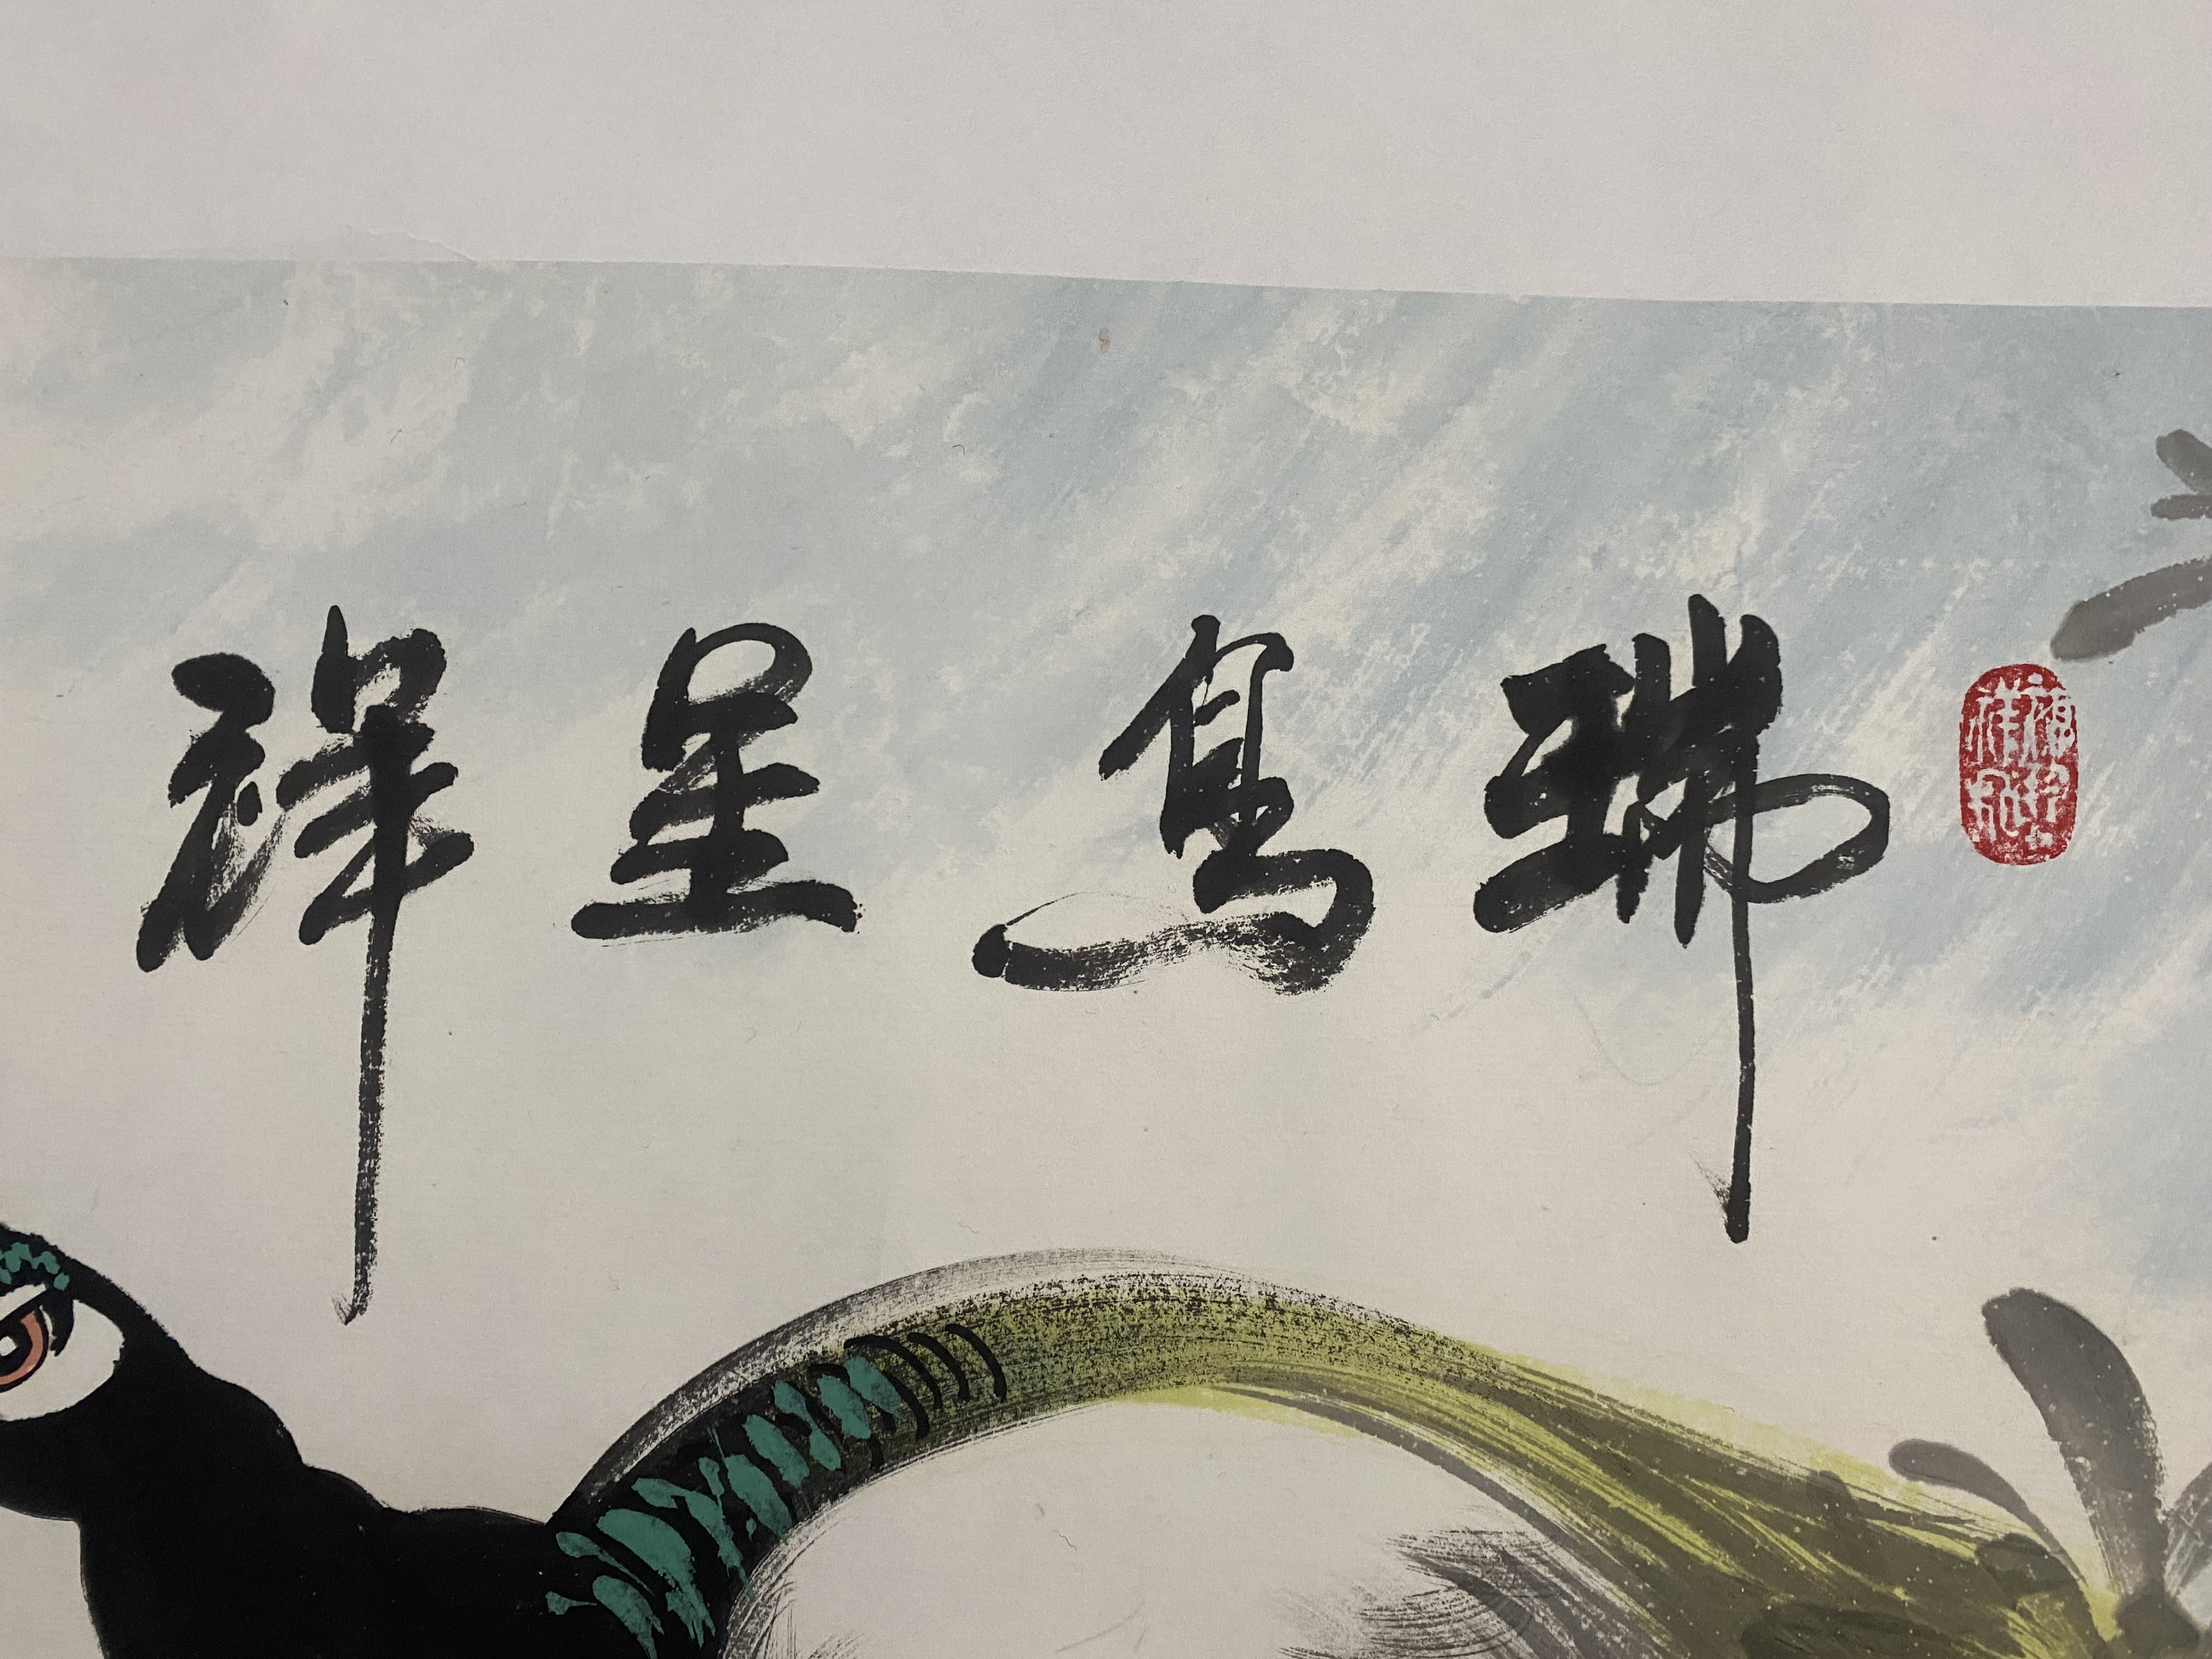 瑞鳥呈祥